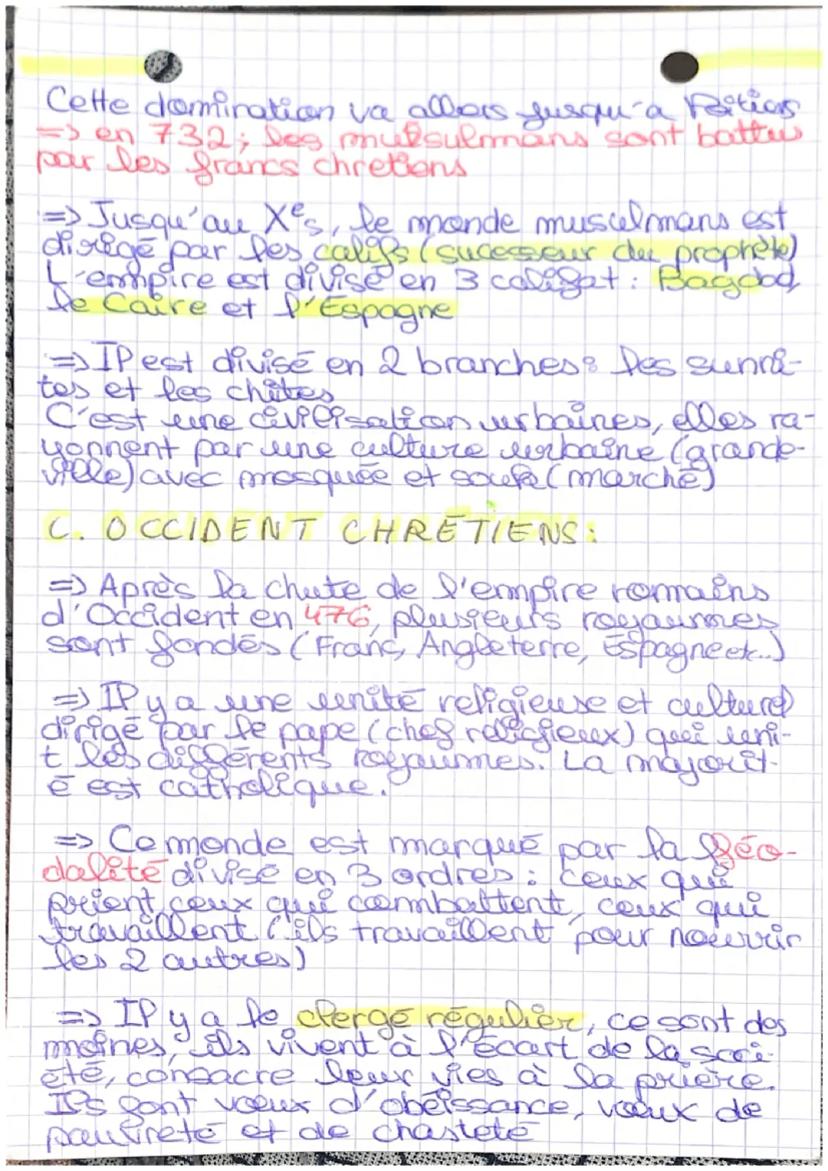 Cette domination va allers jusqu'a Poitiers
=> en 732; les mulsulmans sont battus
par les francs chretiens
=> Jusqu'au Xe s, le monde musulmans est
dirigé par les califs (sucesseur du prophète)
L'empire est divisé en 3 califat : Bagdad,
le Caire et l'Espagne
=> Il est divisé en 2 branches : les sunni-
tes et les chites
C'est une civilisation urbaines, elles ra-
yonnent par une culture urbaine (grande-
ville) avec mosquée et souk (marché)
C. OCCIDENT CHRÉTIENS :
=> Après la chute de l'empire romains
d'Occident en 476, plusieurs royaumes
sont fondés (Franc, Angleterre, Espagne etc..)
=> Il y a une unité religieuse et culturel
dirigé par le pape (chef religieux) qui uni-
t les différents royaumes. La majorit-
é est catholique.
=> Ce monde est marqué par la féo-
dalité divisé en 3 ordres : ceux qui
prient, ceux qui combattent, ceux qui
travaillent (ils travaillent pour nourrir
les 2 autres)
=> Il y a le clergé régulier, ce sont des
moines, ils vivent à l'écart de la soci-
été, consacre leur vies à la prière.
Ils font voeux d'obéissance, voeux de
pauvreté et de chasteté